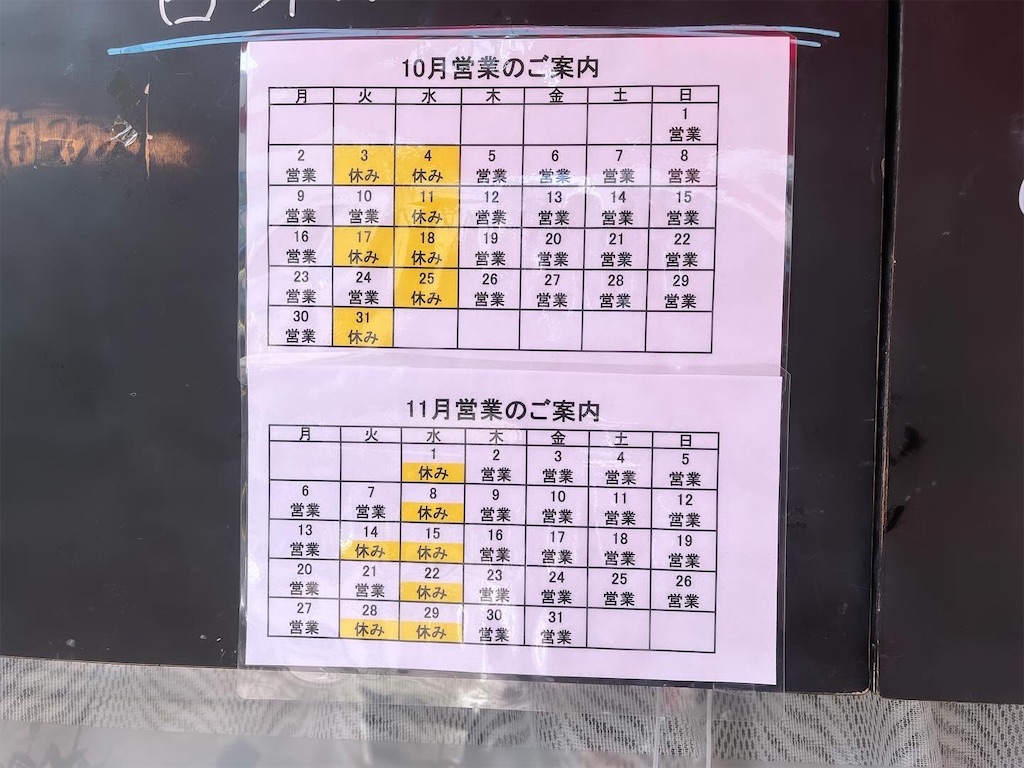 10月営業のご案内
月 火 水 木 金 土 日
1
営業
2 3 4 5 6 7 8
営業 休み 休み 営業 営業 営業 営業
9 10 11 12 13 14 15
営業 営業 休み 営業 営業 営業 営業
16 17 18 19 20 21 22
営業 休み 休み 営業 営業 営業 営業
23 24 25 26 27 28 29
営業 営業 休み 営業 営業 営業 営業
30 31
営業 休み
11月営業のご案内
月 火 水 木 金 土 日
1 2 3 4 5
休み 営業 営業 営業 営業
6 7 8 9 10 11 12
営業 営業 休み 営業 営業 営業 営業
13 14 15 16 17 18 19
営業 休み 休み 営業 営業 営業 営業
20 21 22 23 24 25 26
営業 営業 休み 営業 営業 営業 営業
27 28 29 30 31
営業 休み 休み 営業 営業